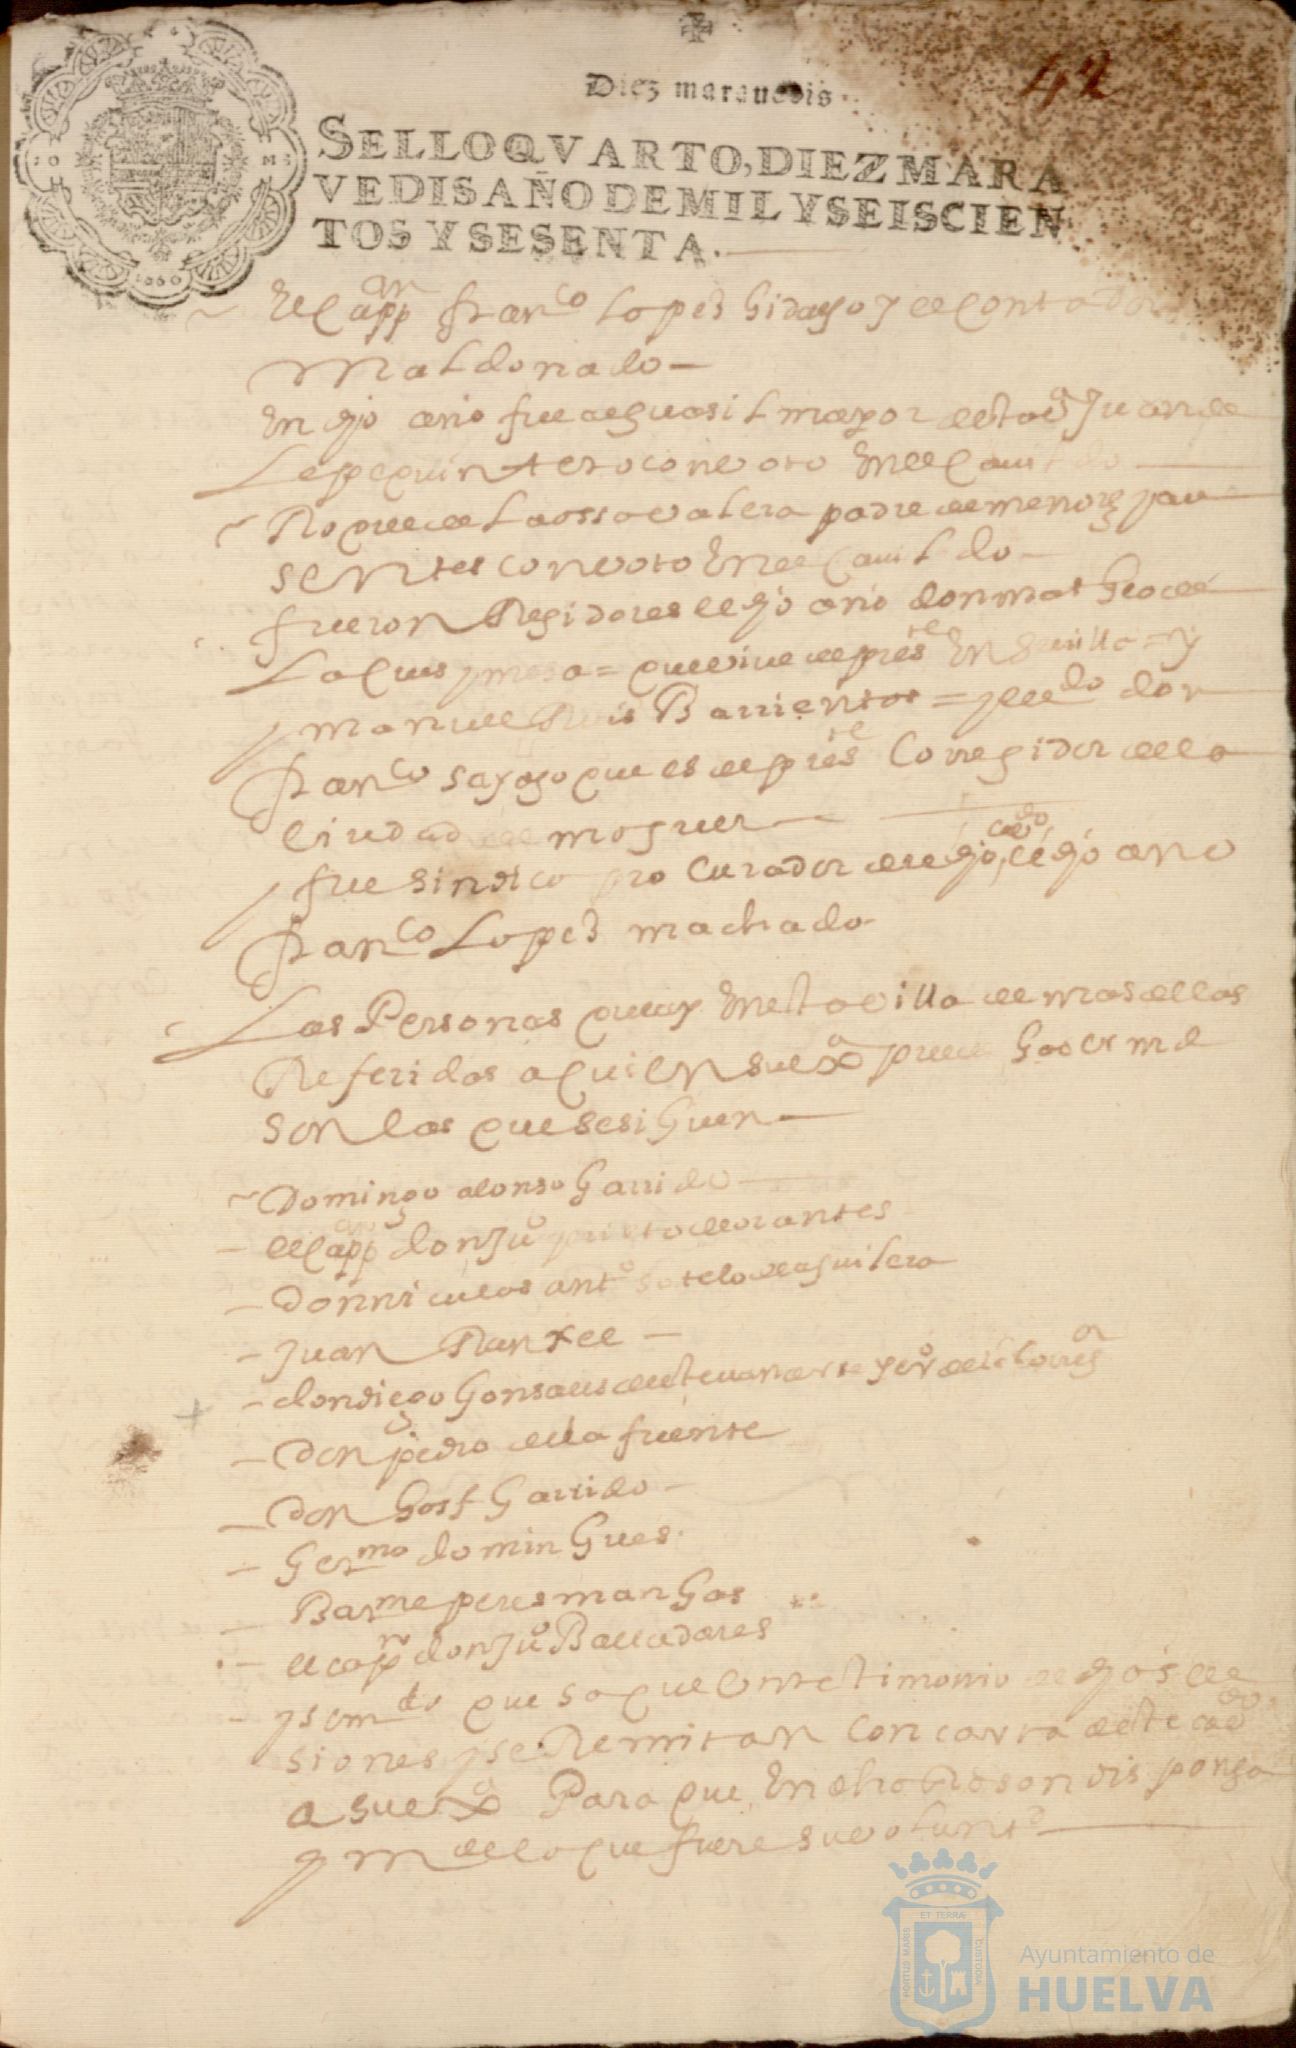 42
Diez marauedis
SELLO QVARTO, DIEZ MARA
VEDIS AÑO DE MIL Y SEISCIEN
TOS Y SESENTA.
1660
El Capp an Franco Lopez hidalgo y el Contador
Maldonado
En dho año fue alguasil mayor desta Va Juan de
Lepe quintero con voto En el Cauildo
Roque de la ossa valera padre de menores y au
sentes con voto En el Cauildo
fueron Regidores el dho año don matheo de
La Cueva y mesa = que vive de preste En Sevilla = y
manuel Ruis Barrientos = y el Ldo don
Franco sayago que es de preste Corregidor de la
Ciudad de moguer
fue sindico procurador de el dho cavdo el dho año
Franco Lopez machado
Las Personas que ay En esta villa de mas de las
Referidas a quien su exa puede haser md
son las que se siguen
Domingo alonso Garrido
el Capp an don Juo prieto de orantes
Don niculas anto sotelo de aguilera
Juan Ranxel
don diego Gonsales
Don pedro de la fuente
Don Josf Garrido
Germo domingues
Barme peres mangas
el capn don Juo Balladares
y se mdo que saque Un testimonio de dhos
siones y se Remitan Con carta deste cavdo
a su exa Para que En dha Rason disponga
y mde lo que fuere su voluntd
PORTUS MARIS
ET TERRAE
CUSTODIA
Ayuntamiento de
HUELVA